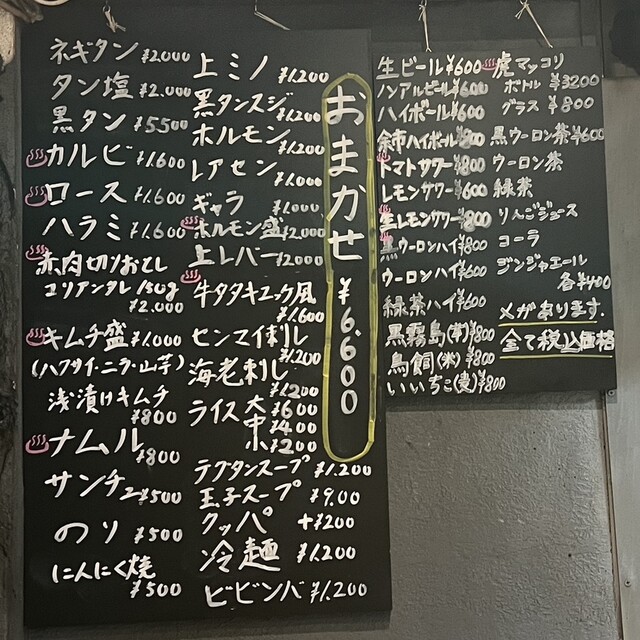 ネギタン ¥2000
タン塩 ¥2.000
黒タン ¥5500
カルビ ¥1.600
ロース ¥1.600
ハラミ ¥1.600
赤肉切りおとし
コリアンタレ 150g
¥2.000
キムチ盛 ¥1.000
(ハクサイ・ニラ・山芋)
浅漬けキムチ
¥800
ナムル
¥800
サンチュ ¥500
のり ¥500
にんにく焼
¥500
上ミノ ¥1.200
黒タンスジ ¥1.200
ホルモン ¥1.200
レアセン ¥1.000
ギャラ ¥1.000
ホルモン盛 ¥2.000
上レバー ¥2000
牛タタキユッケ風
¥1.600
センマイ刺し
¥1.200
海老刺し
¥1.200
ライス 大 ¥600
中 ¥400
小 ¥200
テグタンスープ ¥1.200
玉子スープ ¥900
クッパ +¥200
冷麺 ¥1.200
ビビンバ ¥1.200
おまかせ ¥6.600
生ビール ¥600
ノンアルビール ¥600
ハイボール ¥600
余市ハイボール ¥800
トマトサワー ¥800
レモンサワー ¥600
生レモンサワー ¥800
黒ウーロンハイ ¥800
ウーロンハイ ¥600
緑茶ハイ ¥600
黒霧島(芋) ¥800
鳥飼(米) ¥800
いいちこ(麦) ¥800
虎マッコリ
ボトル ¥3200
グラス ¥800
黒ウーロン茶 ¥600
ウーロン茶
緑茶
りんごジュース
コーラ
ジンジャエール
各¥400
メガあります。
全て税込価格